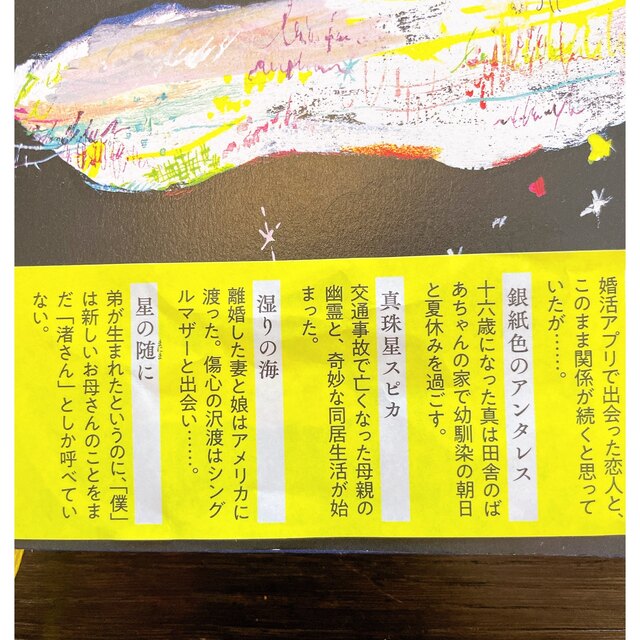 婚活アプリで出会った恋人と、
このまま関係が続くと思って
いたが……。
銀紙色のアンタレス
十六歳になった真は田舎のば
あちゃんの家で幼馴染の朝日
と夏休みを過ごす。
真珠星スピカ
交通事故で亡くなった母親の
幽霊と、奇妙な同居生活が始
まった。
湿りの海
離婚した妻と娘はアメリカに
渡った。傷心の沢渡はシング
ルマザーと出会い……。
星の随に
まにま
弟が生まれたというのに、「僕」
は新しいお母さんのことをま
だ「渚さん」としか呼べてい
ない。